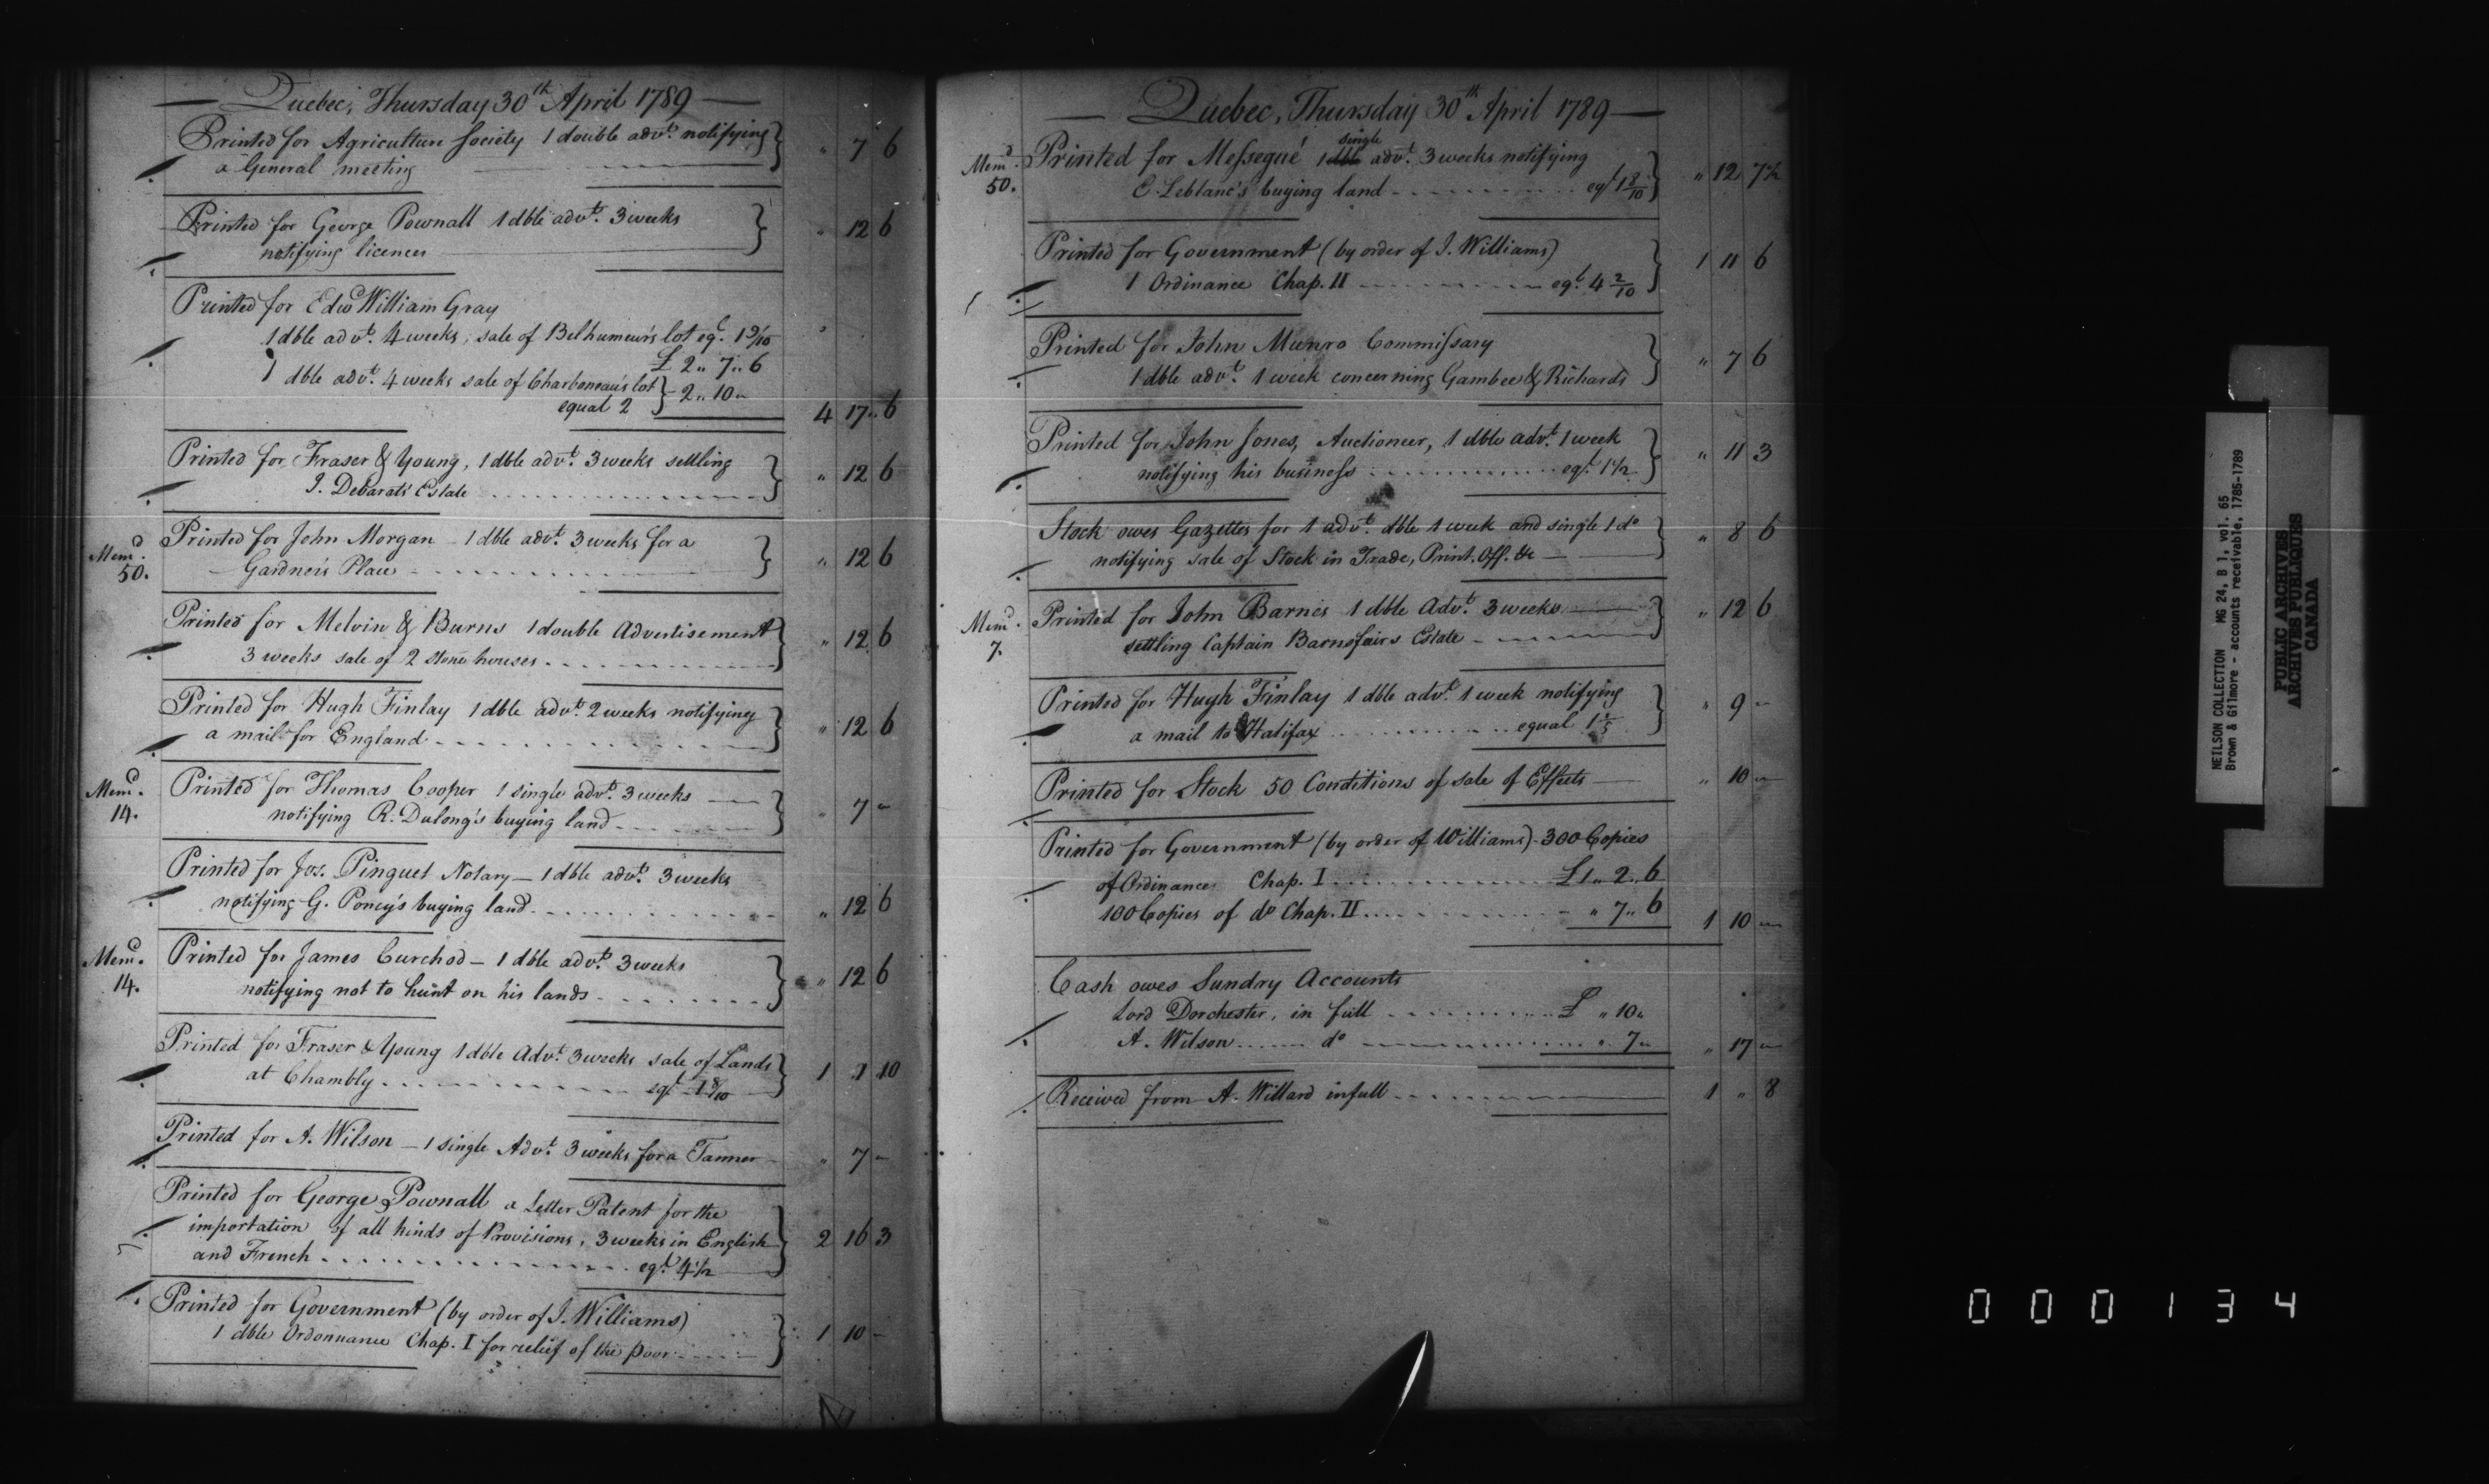 Quebec, Thursday 30th April 1789
Printed for Agriculture Society 1 double advt. notifying
a General meeting " 7 6
Printed for George Pownall 1 dble advt. 3 weeks
notifying licences " 12 6
Printed for Edwd William Gray
1 dble advt. 4 weeks, sale of Belhumeur's lot eql. 1 9/10
£ 2 " 7 " 6
1 dble advt. 4 weeks sale of Charboneau's lot
equal 2 2 " 10 " 4 17 " 6
Printed for Fraser & Young, 1 dble advt. 3 weeks settling
J. Debarats Estate " 12 6
Memd. Printed for John Morgan - 1 dble advt. 3 weeks for a
50. Gardner's Place " 12 6
Printed for Melvin & Burns 1 double Advertisement
3 weeks sale of 2 stone houses " 12 6
Printed for Hugh Finlay 1 dble advt. 2 weeks notifying
a mail for England " 12 6
Memd. Printed for Thomas Cooper 1 single advt. 3 weeks
14. notifying R. Dulong's buying land " 7 "
Printed for Jos. Pinguet Notary - 1 dble advt. 3 weeks
notifying G. Poncy's buying land " 12 6
Memd. Printed for James Curchod - 1 dble advt. 3 weeks
14. notifying not to hunt on his lands " 12 6
Printed for Fraser & Young 1 dble Advt. 3 weeks sale of Lands
at Chambly eql 1 8/10 1 1 10
Printed for A. Wilson - 1 single Advt. 3 weeks for a Tanner " 7 "
Printed for George Pownall a Letter Patent for the
importation of all kinds of Provisions, 3 weeks in English
and French eql. 4 1/2 2 16 3
Printed for Government (by order of J. Williams)
1 dble Ordonnance Chap. I for relief of the poor 1 10 -
Quebec, Thursday 30th April 1789
single
Memd. Printed for Messegué 1 dble advt. 3 weeks notifying
50. C. Leblanc's buying land eql 1 8/10 " 12 7 1/2
Printed for Government (by order of J. Williams)
1 Ordinance Chap. II eql. 4 2/10 1 11 6
Printed for John Munro Commissary
1 dble advt. 1 week concerning Gambee & Richards " 7 6
Printed for John Jones, Auctioneer, 1 dble advt. 1 week
notifying his business eql. 1 1/2 " 11 3
Stock owes Gazettes for 1 advt. dble 1 week and single 1 do
notifying sale of Stock in Trade, Print. Off. &c " 8 6
Memd. Printed for John Barnes 1 dble Advt. 3 weeks
7. settling Captain Barnsfairs Estate " 12 6
Printed for Hugh Finlay 1 dble advt. 1 week notifying
a mail to Halifax equal 1 1/5 " 9 "
Printed for Stock 50 Conditions of sale of Effects " 10 "
Printed for Government (by order of Williams) - 300 Copies
of Ordinance Chap. I £1 " 2 " 6
100 Copies of do Chap. II " 7 " 6 1 10 "
Cash owes Sundry Accounts
Lord Dorchester, in full £ " 10 "
A. Wilson do " 7 " " 17 "
Received from A. Willard in full 1 " 8
NEILSON COLLECTION MG 24, B 1, vol. 65
Brown & Gilmore - accounts receivable, 1785-1789
PUBLIC ARCHIVES
ARCHIVES PUBLIQUES
CANADA
000134